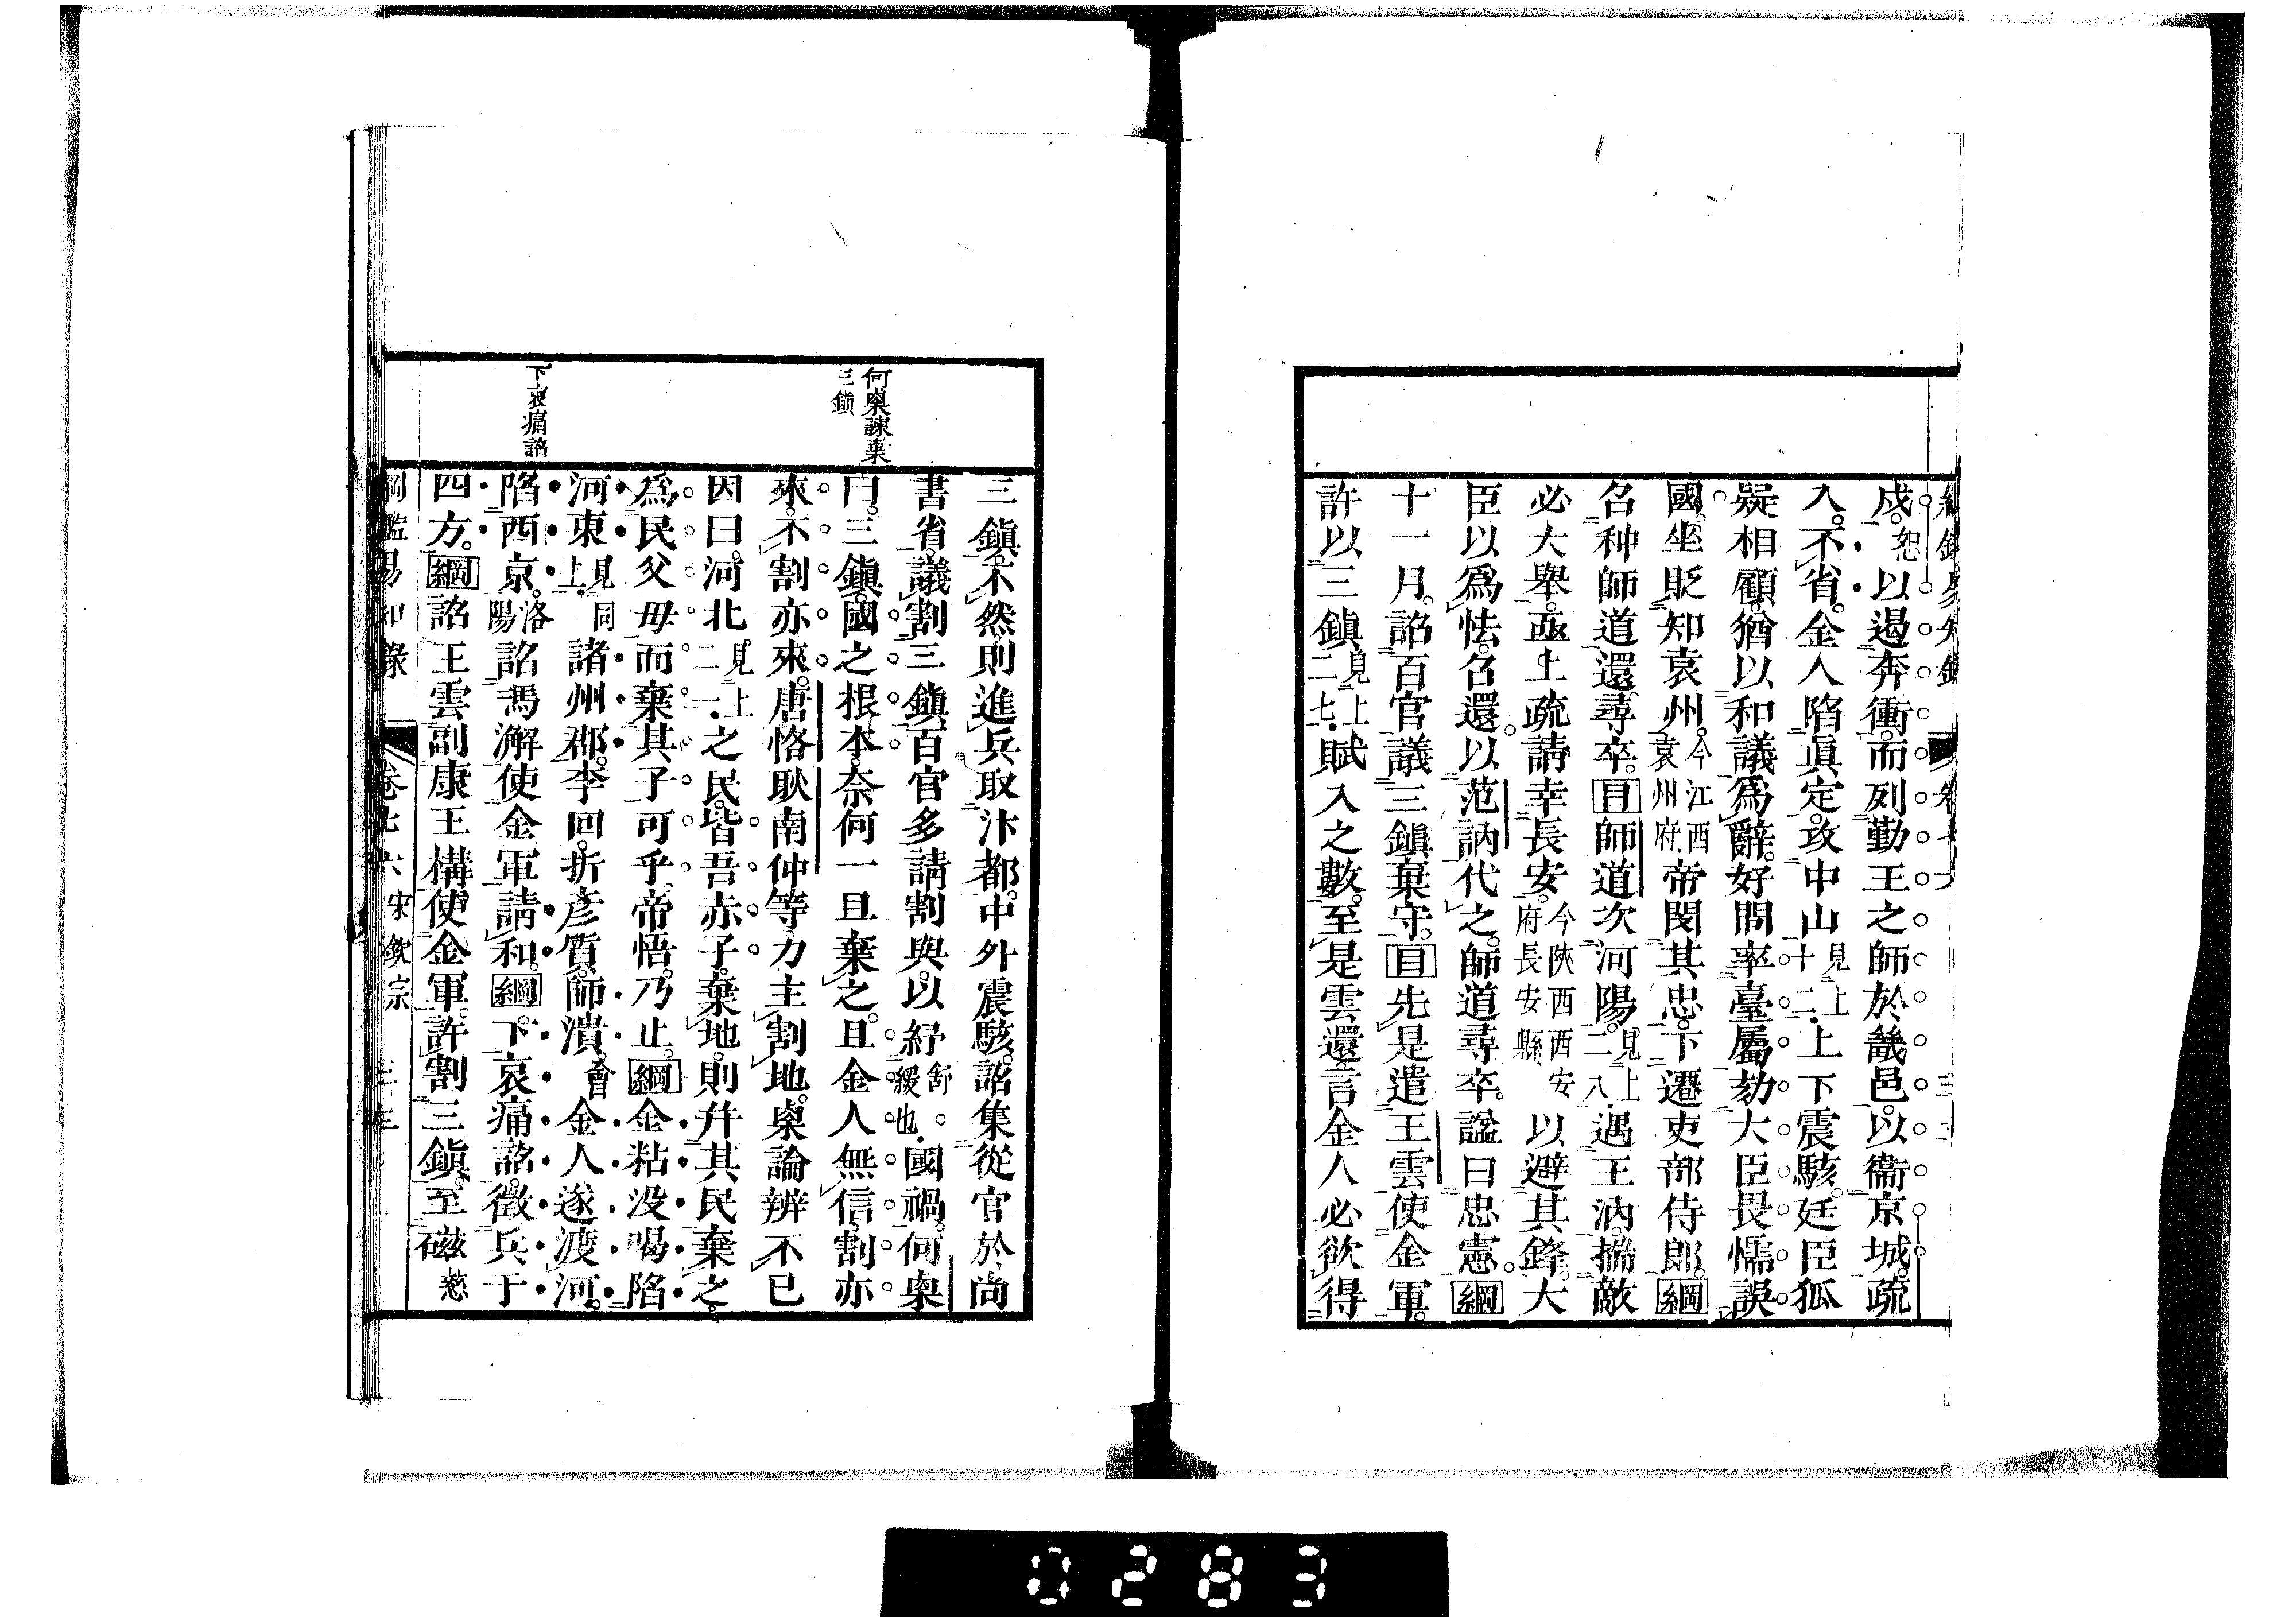 綱鑑易知錄 卷七六
戍。恕以遏奔衝。而列勤王之師於畿邑。以衞京城。疏
入。不省。金人陷眞定。攻中山見上十二。上下震駭。廷臣狐
疑相顧。猶以和議爲辭。好問率臺屬劾大臣畏懦誤
國。坐貶知袁州。今江西袁州府。帝閔其忠。下遷吏部侍郎。綱
召种師道還。尋卒。目師道次河陽。見上二八。遇王汭。揣敵
必大舉。亟上疏請幸長安。今陝西西安府長安縣。以避其鋒。大
臣以爲怯。召還。以范訥代之。師道尋卒。諡曰忠憲。綱
十一月。詔百官議三鎭棄守。目先是遣王雲使金軍。
許以三鎭見上二七。賦入之數。至是雲還。言金人必欲得
何㮚諫棄三鎭
下哀痛詔
三鎭。不然。則進兵取汴都。中外震駭。詔集從官於尚
書省。議割三鎭。百官多請割與。以紓舒。緩也。國禍。何㮚
曰。三鎭。國之根本。奈何一旦棄之。且金人無信。割亦
來。不割亦來。唐恪耿南仲等力主割地。㮚論辨不已
因曰。河北見上二一。之民。皆吾赤子。棄地。則幷其民棄之。
爲民父毋而棄其子可乎。帝悟。乃止。綱金粘没喝陷
河東見同上。諸州郡。李回。折彥質師潰。會金人遂渡河。
陷西京。洛陽詔馮澥使金軍請和。綱下哀痛詔。徵兵于
四方。綱詔王雲副康王構使金軍。許割三鎭。至磁慈
綱鑑易知錄 卷七六 宋欽宗
0283